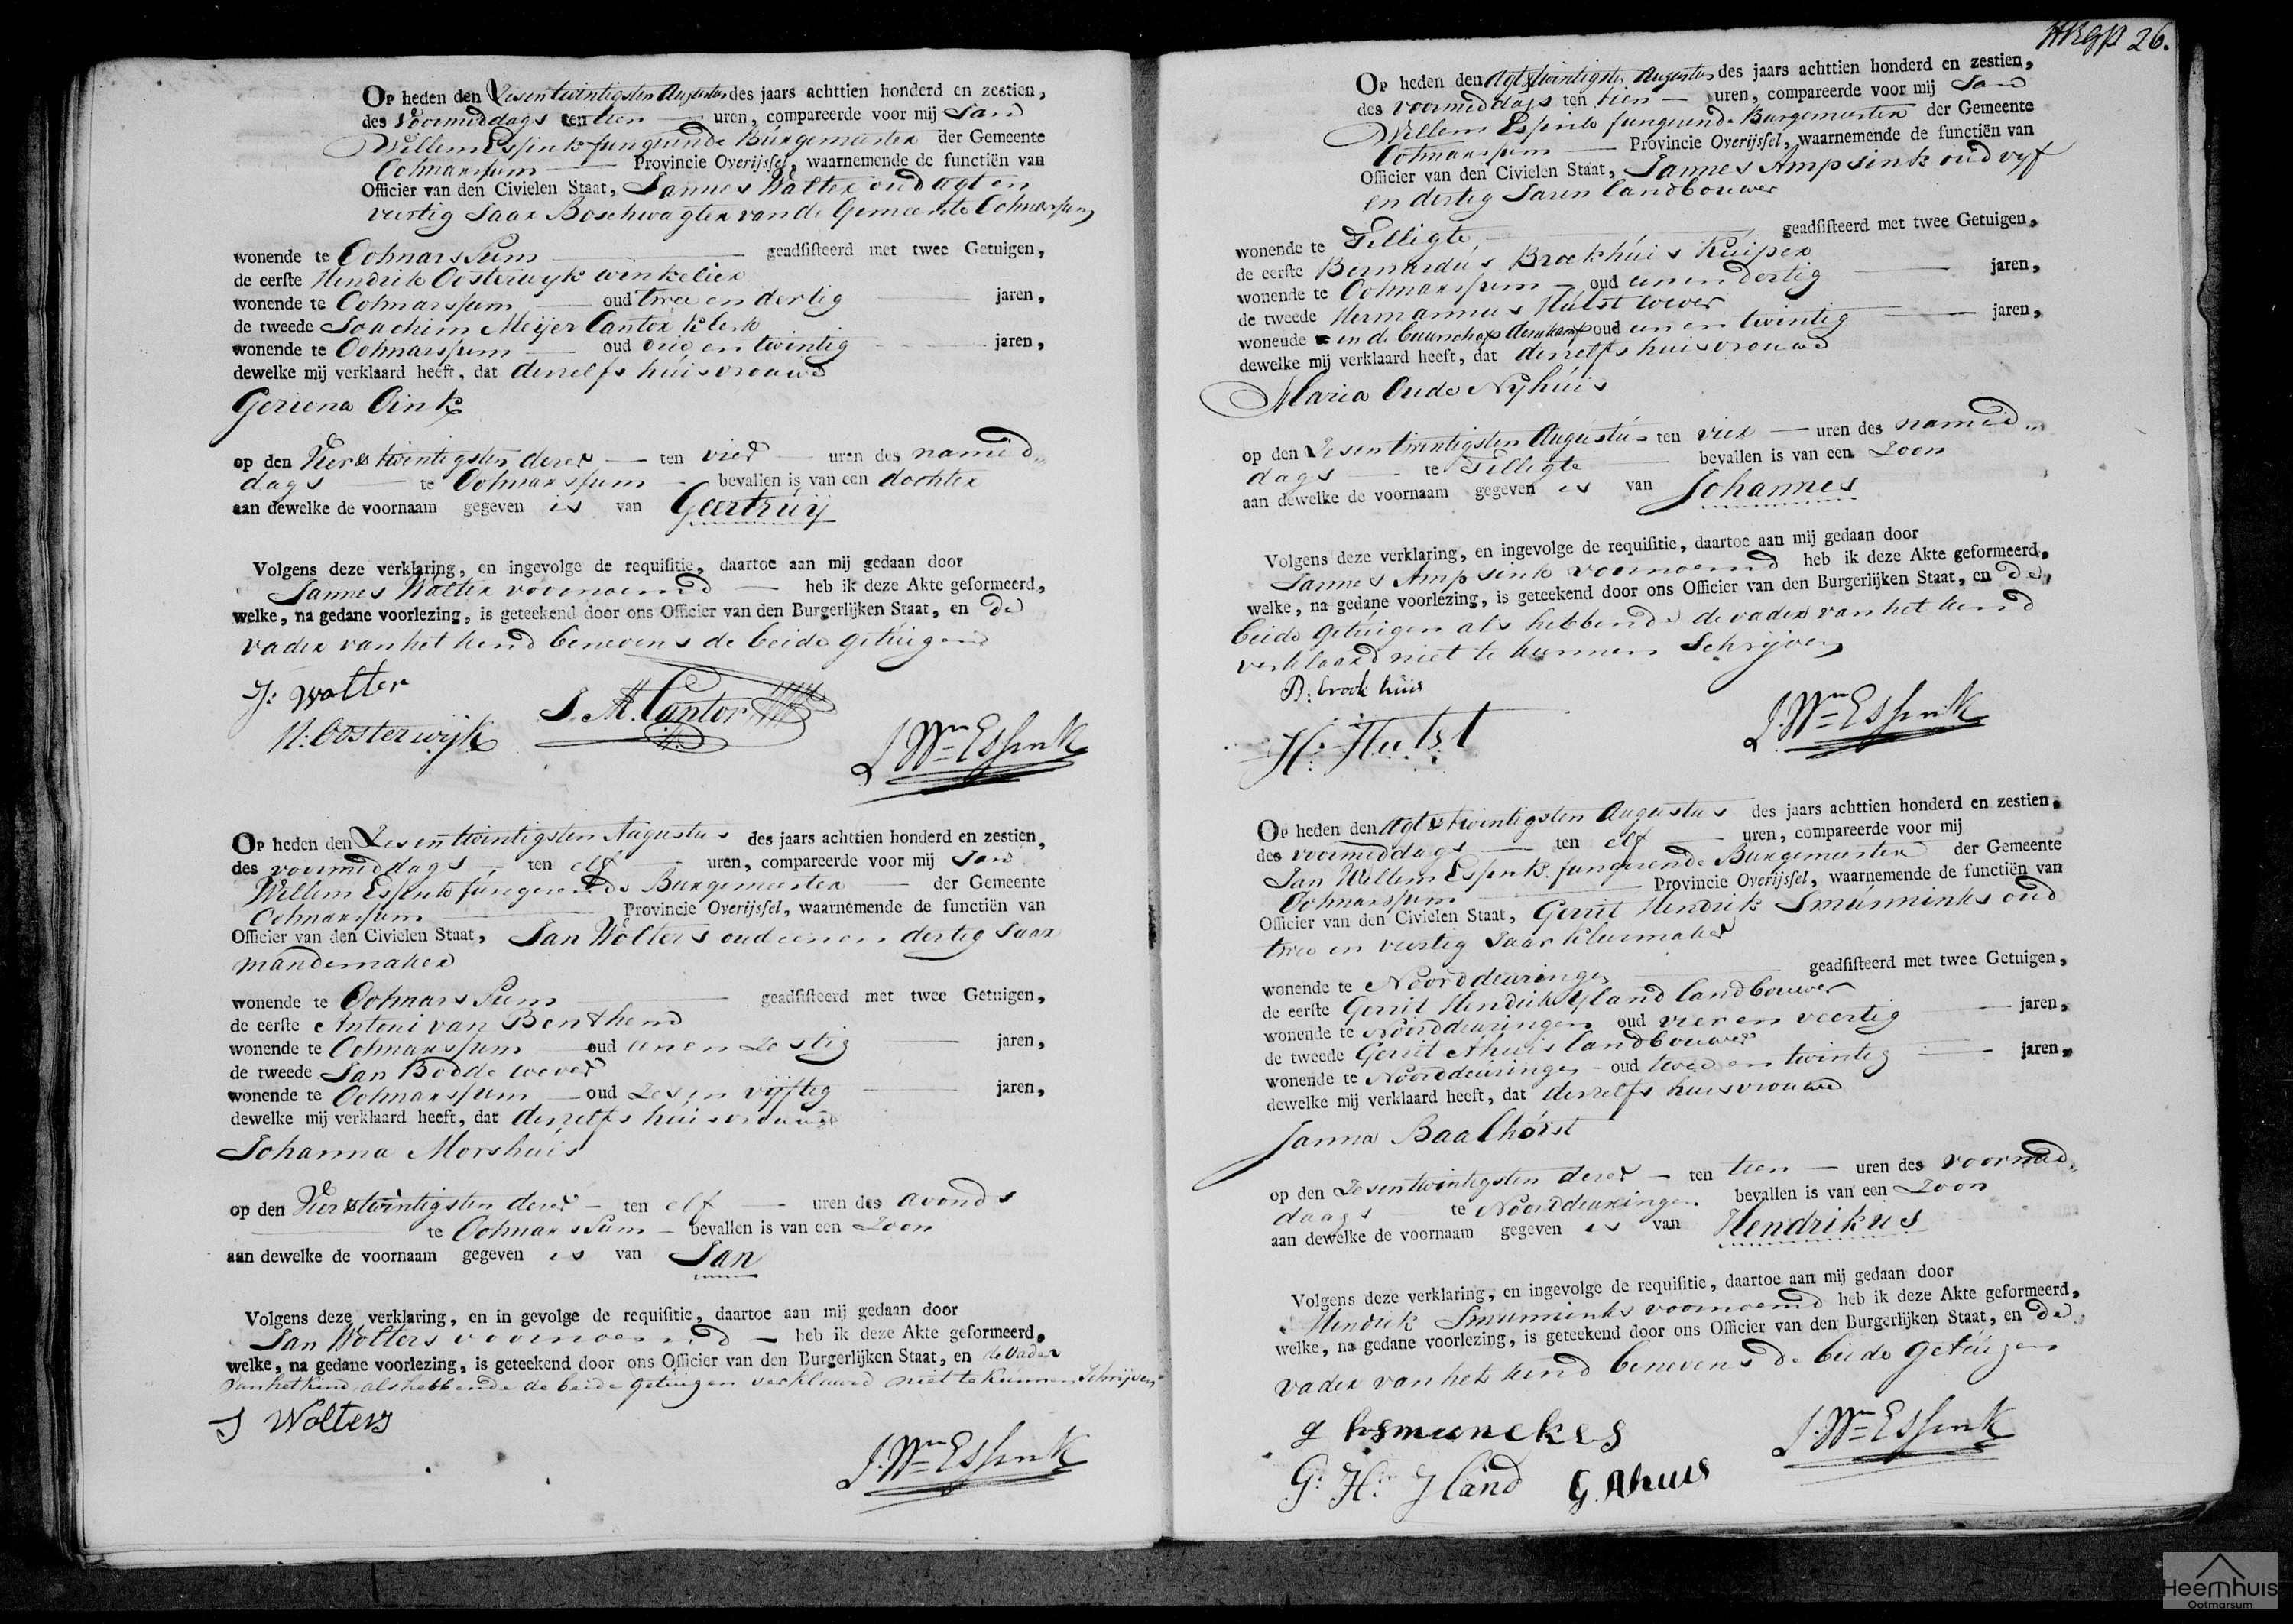 Op heden den Zesentwintigsten Augustus des jaars achttien honderd en zestien,
des Voormiddags ten tien uren, compareerde voor mij Jan
Willem Essink fungerende Burgemeester der Gemeente
Ootmarssum Provincie Overijssel, waarnemende de functiën van
Officier van den Civielen Staat, Jannes Wolter oud agt en
veertig Jaar Boschwagter van de Gemeente Ootmarssum
wonende te Ootmarssum geadsisteerd met twee Getuigen,
de eerste Hendrik Oosterwyk winkelier
wonende te Ootmarssum oud twee en dertig jaren,
de tweede Joachim Meijer Cantor klerk
wonende te Ootmarssum oud drie en twintig jaren,
dewelke mij verklaard heeft, dat deszelfs huisvrouwe
Geriena Oink
op den Vier & twintigsten dezer ten vier uren des namid„
dags te Ootmarssum bevallen is van een dochter
aan dewelke de voornaam gegeven is van Geertruij
Volgens deze verklaring, en ingevolge de requisitie, daartoe aan mij gedaan door
Jannes Wolter voornoemd heb ik deze Akte geformeerd,
welke, na gedane voorlezing, is geteekend door ons Officier van den Burgerlijken Staat, en de
vader van het kend benevens de beide getuigen
J: Wolter
H: Oosterwijk J. M. Cantor
J Wm Essink
Op heden den Zesentwintigsten Augustus des jaars achttien honderd en zestien,
des voormiddags ten elf uren, compareerde voor mij Jan
Willem Essink fungerende Burgemeester der Gemeente
Ootmarssum Provincie Overijssel, waarnemende de functiën van
Officier van den Civielen Staat, Jan Wolters oud een en dertig Jaar
mandemaker
wonende te Ootmarssum geadsisteerd met twee Getuigen,
de eerste Antoni van Benthem
wonende te Ootmarssum oud een en zestig jaren,
de tweede Jan Bodde wever
wonende te Ootmarssum oud zes en vijftig jaren,
dewelke mij verklaard heeft, dat deszelfs huisvrouwe
Johanna Morshuis
op den Vier & twintigsten dezer ten elf uren des avonds
te Ootmarssum bevallen is van een Zoon
aan dewelke de voornaam gegeven is van Jan
Volgens deze verklaring, en in gevolge de requisitie, daartoe aan mij gedaan door
Jan Wolters voornoemd heb ik deze Akte geformeerd,
welke, na gedane voorlezing, is geteekend door ons Officier van den Burgerlijken Staat, en de Vader
van het kind als hebbende de beide getuigen verklaard niet te kunnen Schrijven
J Wolters
J. Wm Essink
26.
Op heden den Agt & twintigste Augustus des jaars achttien honderd en zestien,
des voormiddags ten tien uren, compareerde voor mij Jan
Willem Essink fungerende Burgemeester der Gemeente
Ootmarssum Provincie Overijssel, waarnemende de functiën van
Officier van den Civielen Staat, Jannes Ampsink oud vyf
en dertig Jaren landbouwer
wonende te Tilligte geadsisteerd met twee Getuigen,
de eerste Bernardus Broekhuis Kuiper
wonende te Ootmarssum oud een en dertig jaren,
de tweede Hermannus Hulst wever
wonende in de buurschap denekamp oud een en twintig jaren,
dewelke mij verklaard heeft, dat deszelfs huisvrouwe
Maria Oude Nyhuis
op den Zesentwintigsten Augustus ten vier uren des namid„
dags te Tilligte bevallen is van een Zoon
aan dewelke de voornaam gegeven is van Johannes
Volgens deze verklaring, en ingevolge de requisitie, daartoe aan mij gedaan door
Jannes Ampsink voornoemd heb ik deze Akte geformeerd,
welke, na gedane voorlezing, is geteekend door ons Officier van den Burgerlijken Staat, en de
beide getuigen als hebbende de vader van het kend
verklaard niet te kunnen Schrijven
B: broekhuis
H: Hulst J. Wm Essink
Op heden den Agt & twintigsten Augustus des jaars achttien honderd en zestien,
des voormiddags ten elf uren, compareerde voor mij
Jan Willem Essink fungerende Burgemeester der Gemeente
Ootmarssum Provincie Overijssel, waarnemende de functiën van
Officier van den Civielen Staat, Gerrit Hendrik Smunninks oud
twee en veertig Jaar kleermaker
wonende te Noorddeuringen geadsisteerd met twee Getuigen,
de eerste Gerrit Hendrik Yland landbouwer
wonende te Noorddeuringen oud vier en veertig jaren,
de tweede Gerrit Ahuis landbouwer
wonende te Noorddeuringen oud twee en twintig jaren,
dewelke mij verklaard heeft, dat deszelfs huisvrouwe
Janna Baalhorst
op den Zesentwintigsten dezer ten tien uren des voormid„
daags te Noorddeuringen bevallen is van een Zoon
aan dewelke de voornaam gegeven is van Hendrikus
Volgens deze verklaring, en ingevolge de requisitie, daartoe aan mij gedaan door
Hendrik Smunninks voornoemd heb ik deze Akte geformeerd,
welke, na gedane voorlezing, is geteekend door ons Officier van den Burgerlijken Staat, en de
vader van het kend benevens de beide getuigen
g h smunekes
J. Wm Essink
G: H: Yland G. Ahuis
Heemhuis
Ootmarsum